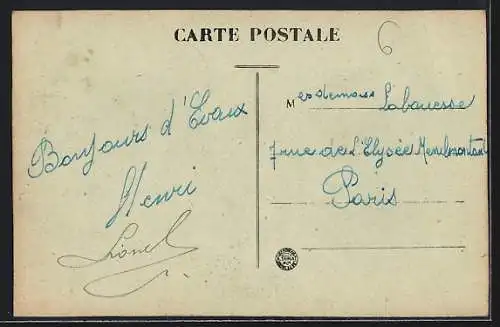 CARTE POSTALE
6
Bonjours d'Evaux
Henri
Lionel
Mesdemois
7 rue de l'Elysée Menilmontant
Paris